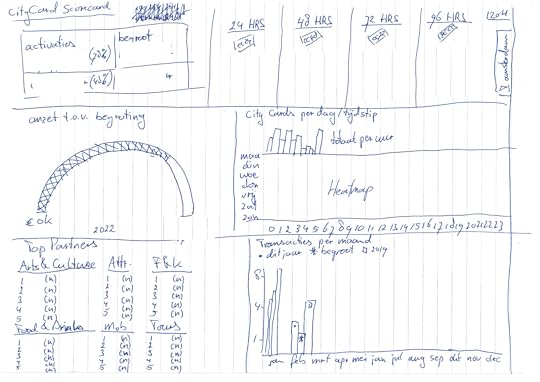 CityCard Scorecard
24 HRS
48 HRS
72 HRS
96 HRS
activaties
begroot
(70%)
amsterdam
omzet t.o.v. begroting
€0k
2022
City Cards per dag/tijdstip
totaal per uur
maa
din
woe
don
vry
zat
zon
Heatmap
0 1 2 3 4 5 6 7 8 9 10 11 12 13 14 15 16 17 18 19 20 21 22 23
Top Partners
Arts & Culture
Attr.
F&k
1 (n) 1 (n) 1 (n)
2 (n) 2 (n) 2 (n)
3 (n) 3 (n) 3 (n)
4 (n) 4 (n) 4 (n)
5 (n) 5 (n) 5 (n)
Food & Drinks
Mob
Tours
1 (n) 1 (n) 1 (n)
2 (n) 2 (n) 2 (n)
3 (n) 3 (n) 3 (n)
4 (n) 4 (n) 4 (n)
5 (n) 5 (n) 5 (n)
Transacties per maand
dit jaar begroot 2019
8
4
1
jan feb mrt apr mei jun jul aug sep okt nov dec